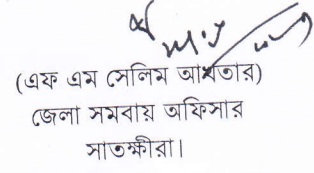 (এফ এম সেলিম আখতার)
জেলা সমবায় অফিসার
সাতক্ষীরা।